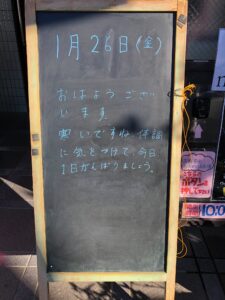 1月26日(金)
おはようござい
います
寒いですね。体調
に気をつけて、今日
1日がんばりましょう。
10:0